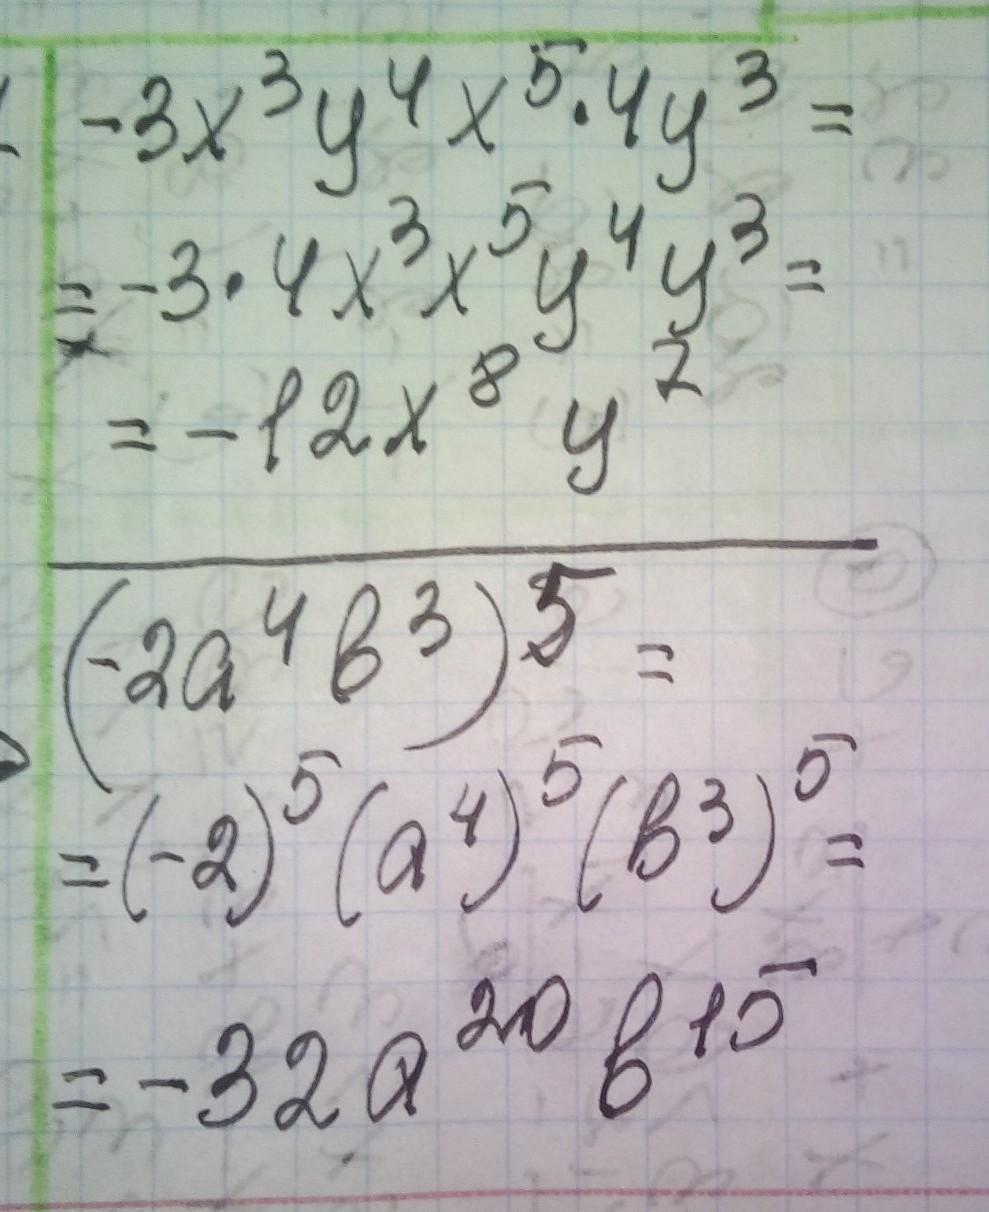 -3x³y⁴x⁵·4y³=
=-3·4x³x⁵y⁴y³=
=-12x⁸y⁷
(-2a⁴b³)⁵=
=(-2)⁵(a⁴)⁵(b³)⁵=
=-32a²⁰b¹⁵